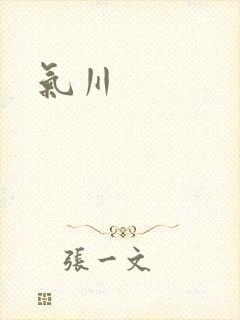 氣川
張一文